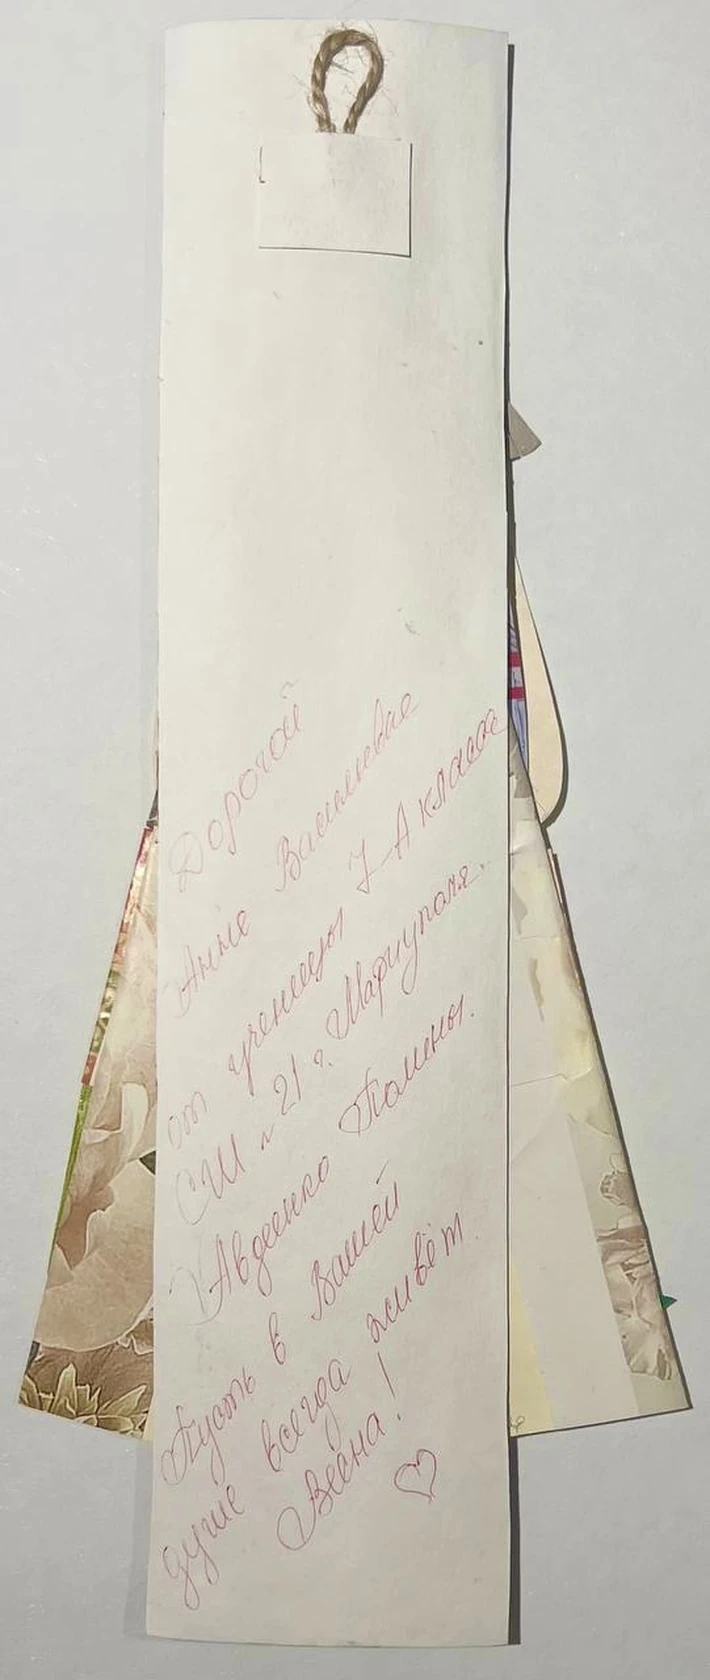 Дорогой
Анне Васильевне
от ученицы 7-А класса
СШ № 21 г. Мариуполя.
Авдеенко Полины.
Пусть в Вашей
душе всегда живёт
Весна!